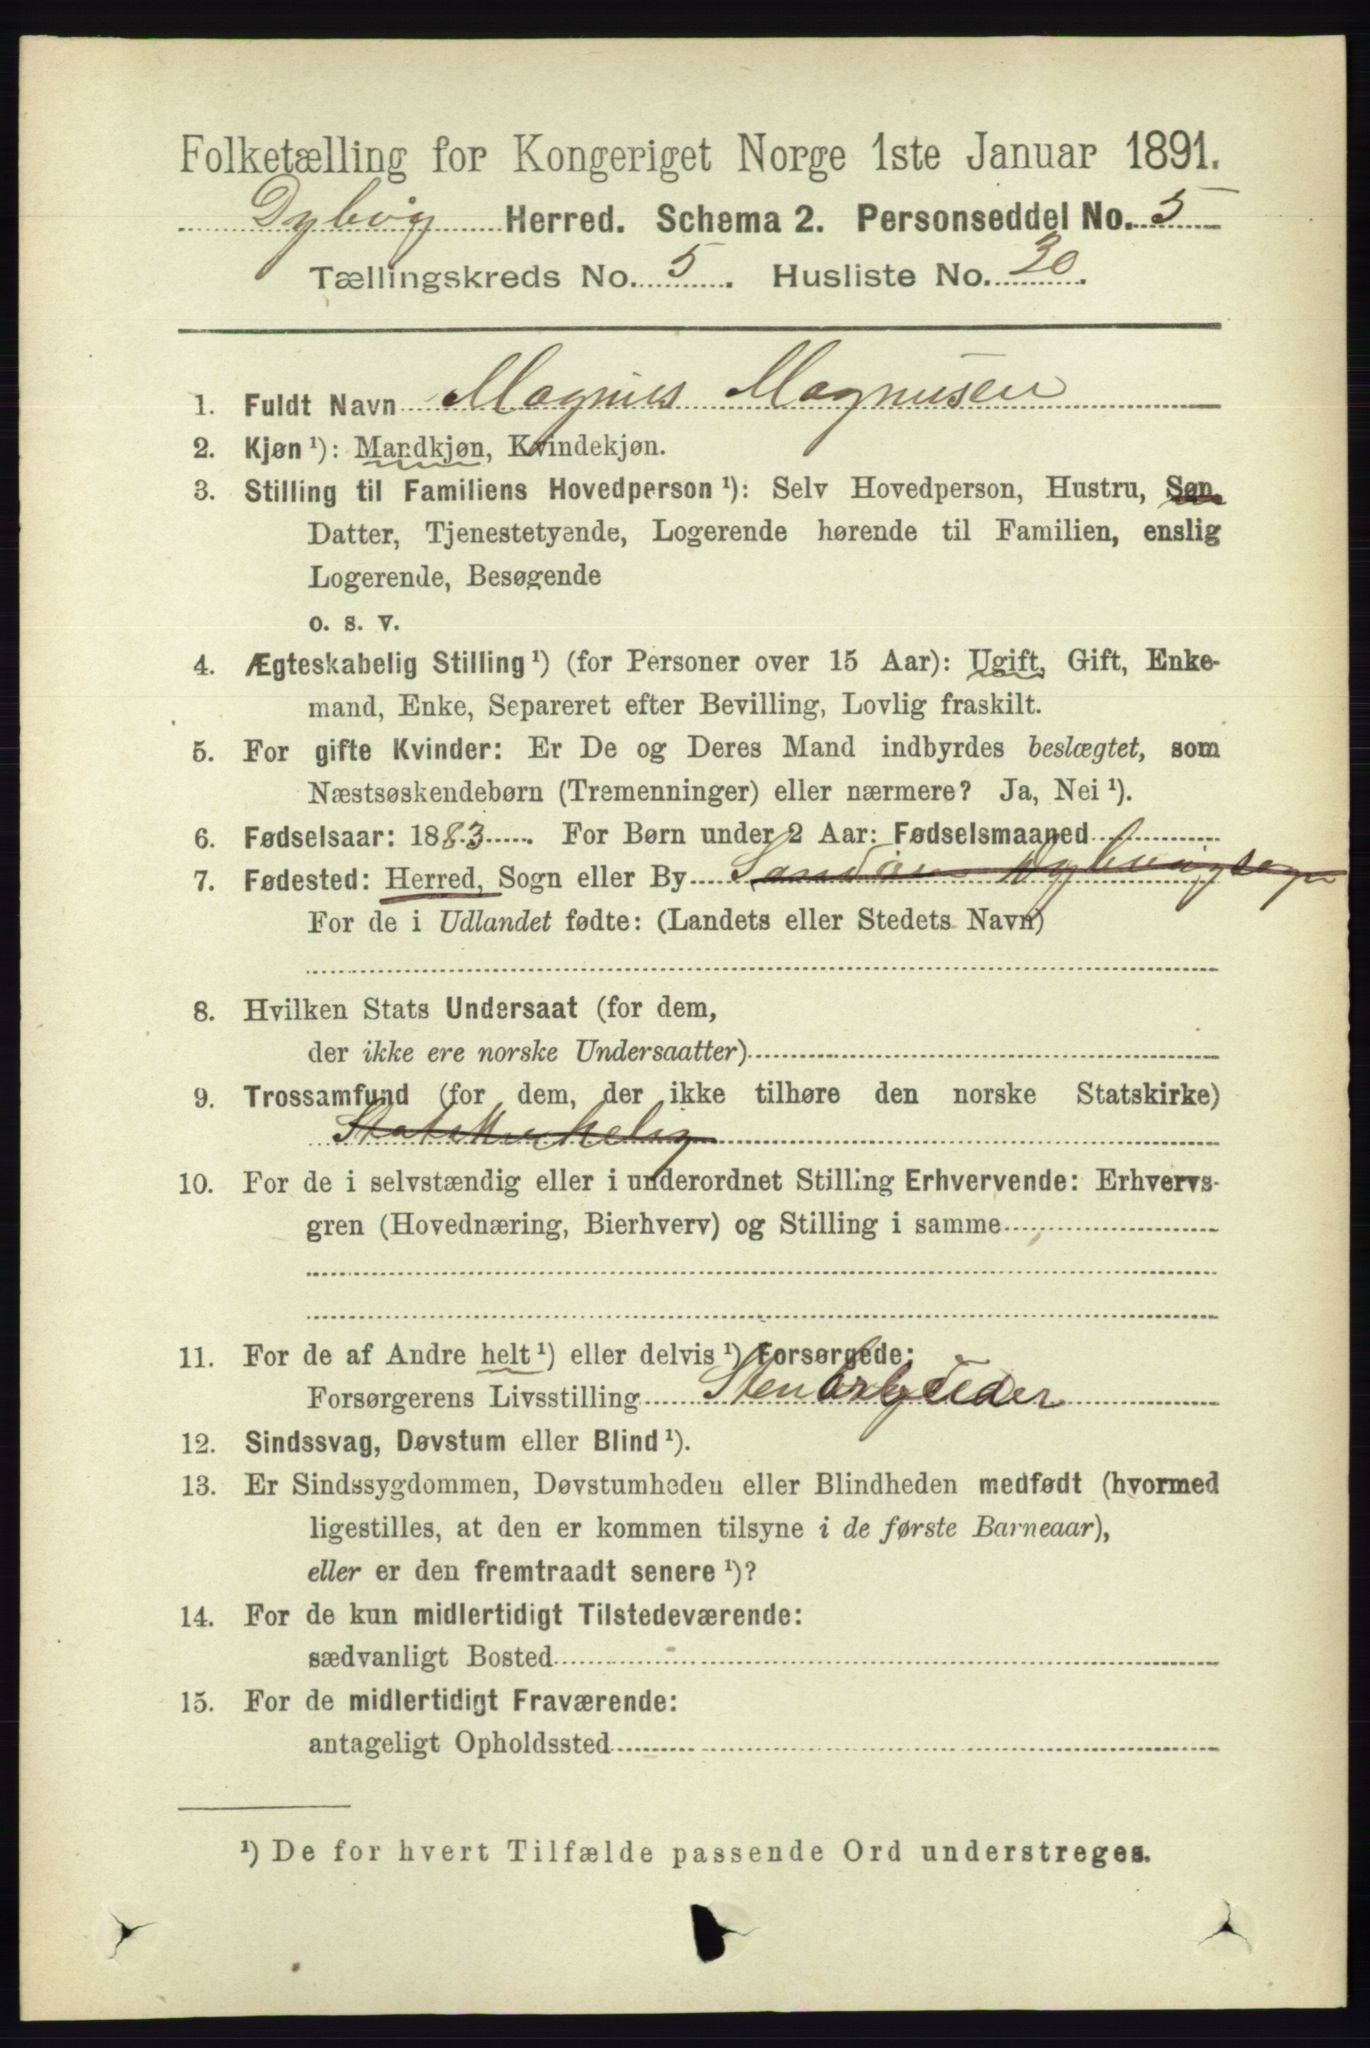 Folketælling for Kongeriget Norge 1ste Januar 1891.
Dybvåg Herred. Schema 2. Personseddel No. 5
Tællingskreds No. 5. Husliste No. 30.
1. Fuldt Navn Magnus Magnusen
2. Kjøn ¹): Mandkjøn, Kvindekjøn.
3. Stilling til Familiens Hovedperson ¹): Selv Hovedperson, Hustru, Søn,
Datter, Tjenestetyende, Logerende hørende til Familien, enslig
Logerende, Besøgende
o. s. v.
4. Ægteskabelig Stilling ¹) (for Personer over 15 Aar): Ugift, Gift, Enke-
mand, Enke, Separeret efter Bevilling, Lovlig fraskilt.
5. For gifte Kvinder: Er De og Deres Mand indbyrdes beslægtet, som
Næstsøskendebørn (Tremenninger) eller nærmere? Ja, Nei ¹).
6. Fødselsaar: 1883. For Børn under 2 Aar: Fødselsmaaned
7. Fødested: Herred, Sogn eller By Sandøen Dybvigsogn
For de i Udlandet fødte: (Landets eller Stedets Navn)
8. Hvilken Stats Undersaat (for dem,
der ikke ere norske Undersaatter)
9. Trossamfund (for dem, der ikke tilhøre den norske Statskirke)
Statskirkelig
10. For de i selvstændig eller i underordnet Stilling Erhvervende: Erhvervs-
gren (Hovednæring, Bierhverv) og Stilling i samme
11. For de af Andre helt ¹) eller delvis ¹) Forsørgede:
Forsørgerens Livsstilling Stenarbeider
12. Sindssvag, Døvstum eller Blind ¹).
13. Er Sindssygdommen, Døvstumheden eller Blindheden medfødt (hvormed
ligestilles, at den er kommen tilsyne i de første Barneaar),
eller er den fremtraadt senere ¹)?
14. For de kun midlertidigt Tilstedeværende:
sædvanligt Bosted
15. For de midlertidigt Fraværende:
antageligt Opholdssted
¹) De for hvert Tilfælde passende Ord understreges.